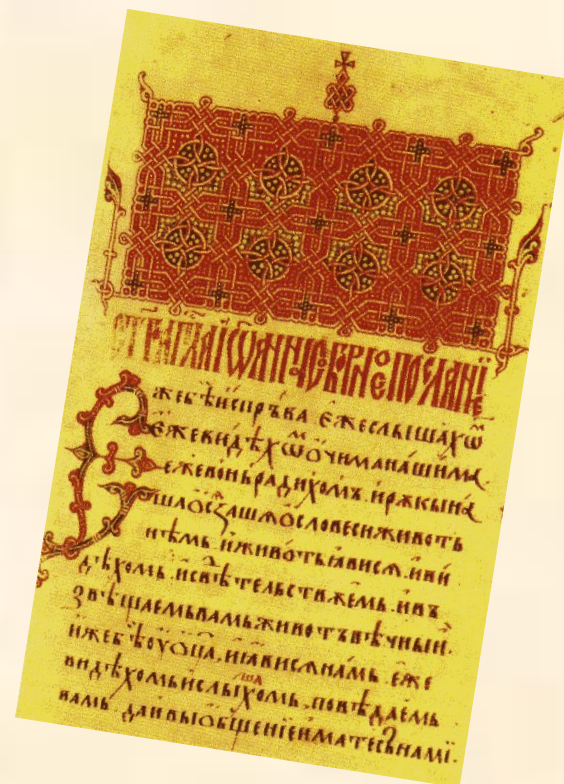 ст҃го ап҃ла їѡанна съборное посланїе
Єже бѣ испръва єже слышахѡⷨ
єже видѣхѡⷨ ѻчима нашима
єже въньрадихомъ. и рѫкы на
шѧ ѻсѧзашѧ ѻ словеси живот
нѣмь. и животь ꙗвисѧ. и ви
дѣхомь. и свѣтельствꙋемь. и въ
звѣщаемь вамь животъ вѣчныи.
иже бѣ ѹ ѻц҃а, и ꙗвисѧ намь єже
видѣхомь и слышахомь, повѣдаємь
вамь да и вы ѻбщенїе имате съ нами.